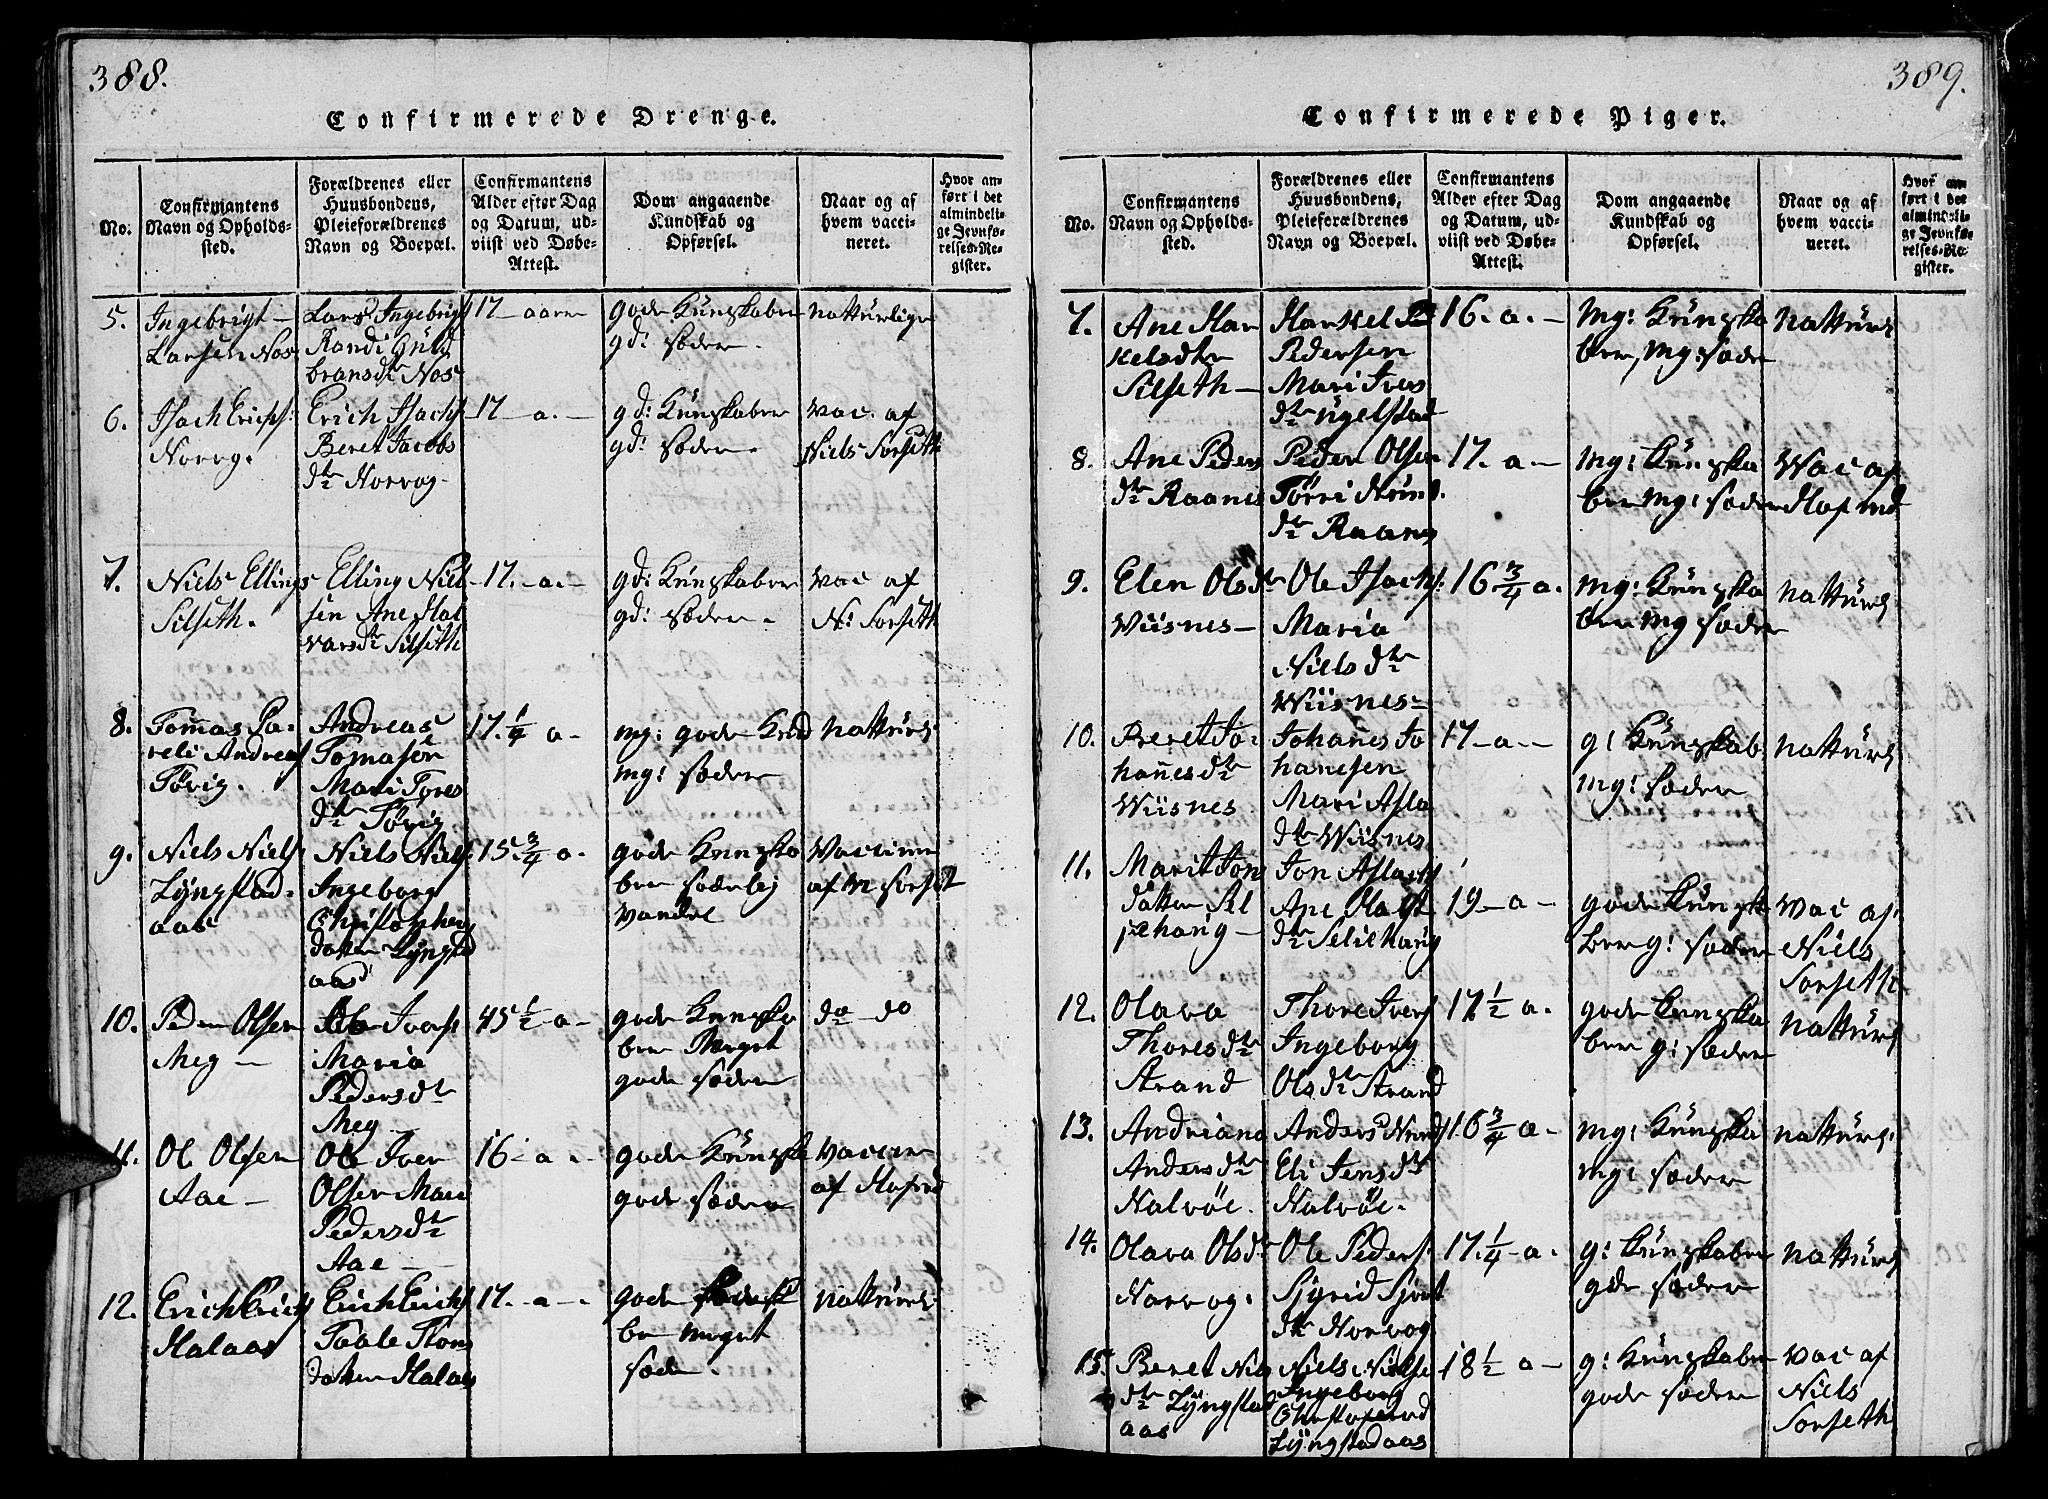 388.
Confirmerede Drenge.
No.
Confirmantens
Navn og Opholds-
sted.
Forældrenes eller
Huusbondens,
Pleieforældrenes
Navn og Boepæl.
Confirmantens
Alder efter Dag
og Datum, ud-
viist ved Døbe-
Attest.
Dom angaaende
Kundskab og
Opførsel.
Naar og af
hvem vacci-
neret.
Hvor an-
ført i det
almindeli-
ge Jevnfø-
relses-Re-
gister.
5.
Ingebrigt
Larsen Nos
Lars Ingebrigt
Randi Guld
bransdtr Nos
17 - aare
gode Kunskaber
gd: sæder.
natturlige
6.
Isach Erichs:
Norvg.
Erich Isachs
Beret Jacobs
dtr Norvog
17 - a. -
gd: Kunskaber
gd: sæder.
Vac. af
Niels Sorseth
7.
Niels Ellings
Silseth.
Elling Niel
sen Ane Hal
varsdtr Silseth
17. - a. -
gd: Kunskaber
gd: sæder.
Vac af
N: Sorseth
8.
Tommas Pa-
reli Andreas
Tørig.
Andreas
Tomasøn
Mari Tores
dtr Tørig
17. 1/4 a -
mg: gode Knd
mg: sæder
natturl:
9.
Niels Niels
Lyngstad-
aas
Niels Niels:
Ingeborg
Christopher
datter Lyngstd
aas
15 3/4 a.
gode Kunska
ber særlej
vandel
Vaccine
af N Sorset
10.
Peder Olsen
Meg -
Ole Ivers:
Maria
Pedersdtr
Meg
15 1/2 - a -
gode Kunska
ber Meget
gode sæder
do do
11.
Ol Olsen
Aae -
Ole Iver
Olsen Mari
Pedersdtr
Aae
16 - a -
gode Kunska
gode sæder
Vaccine
af Hafred
12.
Erich Erichs
Halaas
Erich Erichs
Taale Thors
datter Halaas
17. - a -
gode
ber meget
sæder.
natturl:
389.
Confirmerede Piger.
No.
Confirmantens
Navn og Opholds-
sted.
Forældrenes eller
Huusbondens,
Pleieforældrenes
Navn og Boepæl.
Confirmantens
Alder efter Dag
og Datum, ud-
viist ved Døbe-
Attest.
Dom angaaende
Kundskab og
Opførsel.
Naar og af
hvem vacci-
neret.
Hvor an-
ført i det
almindeli-
ge Jevnfø-
relses-Re-
gister.
7.
Ane Har
kelsdtr
Silseth -
Harkel
Pedersen
Mari Ivers
dtr Ugelstad
16. a. -
mg: Kunska
ber, mg: sæder
natturl
8.
Ane Peders
dtr Raanes
Peder Olsen
Tørri Knud
dtr Raanes
17. a -
mg: Kunska
ber mg: sæder
Vac af
Hafred
9.
Elen Olsdtr
Wiisnes -
Ole Isachs:
Maria
Nielsdtr
Wiisnes -
16 3/4 a.
mg: Kunska
ber mg sæder
natturl
10.
Beret Jo-
hannesdtr
Wiisnes
Johannes Jo
hansen
Mari Asla
dtr Wiisnes
17 - a -
g: Kunskab
mg: sæder
natturl
11.
Marit Jon
datter Sel
jehaug -
Jon Aslachs
Ane Halst
dtr Seliehaug
19 - a -
gode Kunska
ber g: sæder
Vac af
Niels
Sorseth
12.
Olava
Thoresdtr
Strand
Thore Ivers
Ingeborg
Olsdtr Strand
17 1/2 a.
gode Kunska
ber g: sæder
natturl
13.
Andriana
Andersdtr
Nalvöe.
Anders Knuds
Eli Jensdtr
Nalvöe.
16 3/4 a -
mg: Kunska
mg: sæder
natturl:
14.
Olava Olsdtr
Norvog.
Ole Peders:
Sjgrid Sjvert
dtr Norvog
17. 1/4 - a.
g: Kunskaber
gde sæder
natturl
15.
Beret Niels
dtr Lyngstad
aas
Niels Nielse
Ingeborg
Lyngstadaas
18 1/2 a -
g: Kunskaber
gode sæder
Vac af
Niels
Sorseth